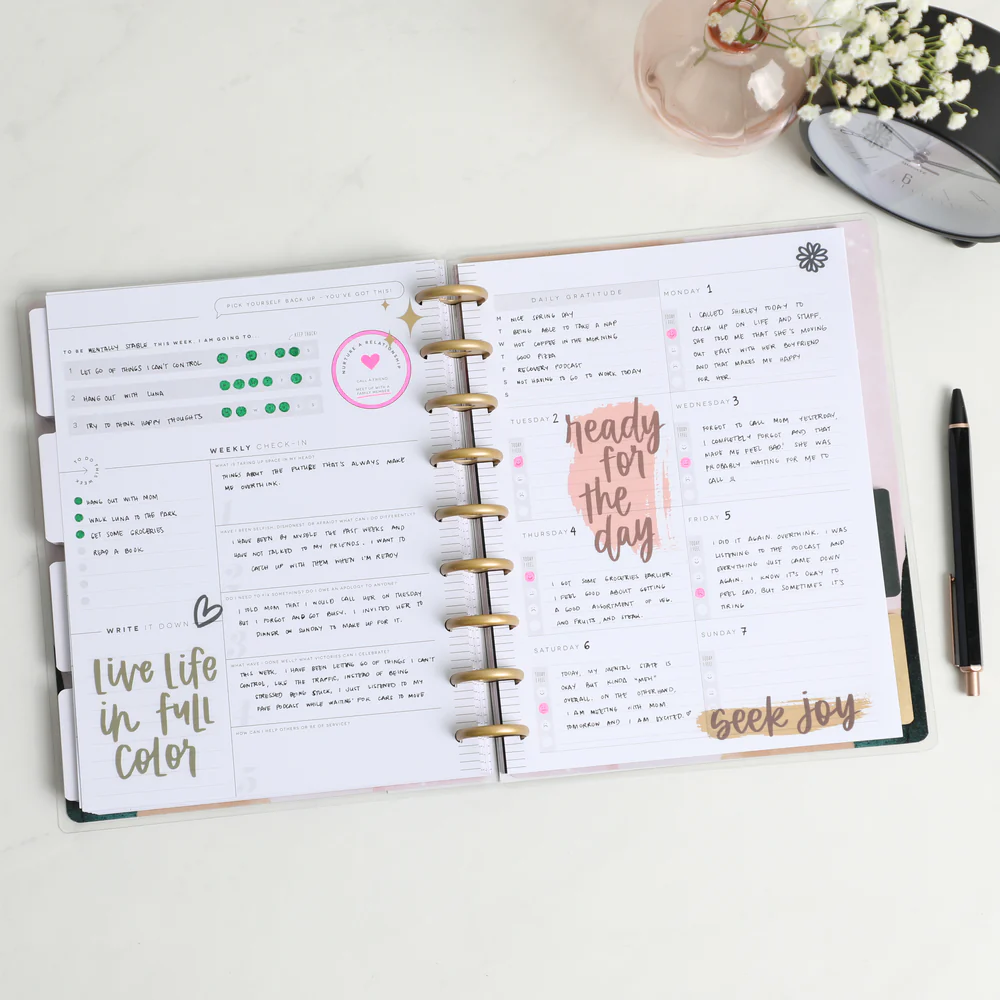 PICK YOURSELF BACK UP — YOU'VE GOT THIS!
TO BE MENTALLY STABLE THIS WEEK, I AM GOING TO
1 LET GO OF THINGS I CAN'T CONTROL
2 HANG OUT WITH LUNA
3 TRY TO THINK HAPPY THOUGHTS
NURTURE A RELATIONSHIP
WEEKLY CHECK-IN
WHAT IS TAKING UP SPACE IN MY HEAD?
THINGS ABOUT THE FUTURE THAT'S ALWAYS MAKE
ME OVERTHINK.
HAVE I BEEN SELFISH, DISHONEST OR AFRAID? WHAT CAN I DO DIFFERENTLY?
I HAVE BEEN BY MYSELF THE PAST WEEKS AND
HAVE NOT TALKED TO MY FRIENDS. I WANT TO
CATCH UP WITH THEM WHEN I'M READY
DO I NEED TO FIX SOMETHING? DO I OWE AN APOLOGY TO ANYONE?
I TOLD MOM THAT I WOULD CALL HER ON TUESDAY
BUT I FORGOT AND GOT BUSY. I INVITED HER TO
DINNER ON SUNDAY TO MAKE UP FOR IT.
WHAT HAVE I DONE WELL? WHAT VICTORIES CAN I CELEBRATE?
THIS WEEK, I HAVE BEEN LETTING GO OF THINGS I CAN'T
CONTROL, LIKE THE TRAFFIC, INSTEAD OF BEING
STRESSED BEING STUCK, I JUST LISTENED TO MY
FAVE PODCAST WHILE WAITING FOR CARS TO MOVE
HOW CAN I HELP OTHERS OR BE OF SERVICE?
HANG OUT WITH MOM
WALK LUNA TO THE PARK
GET SOME GROCERIES
READ A BOOK
WRITE IT DOWN
live life
in full
color
DAILY GRATITUDE
M NICE SPRING DAY
T BEING ABLE TO TAKE A NAP
W HOT COFFEE IN THE MORNING
T GOOD PIZZA
F RECOVERY PODCAST
S NOT HAVING TO GO TO WORK TODAY
S
MONDAY 1
I CALLED SHIRLEY TODAY TO
CATCH UP ON LIFE AND STUFF.
SHE TOLD ME THAT SHE'S MOVING
OUT EAST WITH HER BOYFRIEND
AND THAT MAKES ME HAPPY
FOR HER.
TUESDAY 2
ready
for
the
day
WEDNESDAY 3
FORGOT TO CALL MOM YESTERDAY,
I COMPLETELY FORGOT AND THAT
MADE ME FEEL BAD. SHE WAS
PROBABLY WAITING FOR ME TO
CALL
THURSDAY 4
I GOT SOME GROCERIES EARLIER.
I FEEL GOOD ABOUT GETTING
A GOOD ASSORTMENT OF VEG,
AND FRUITS, AND STEAK.
FRIDAY 5
I DID IT AGAIN. OVERTHINK. I WAS
LISTENING TO THE PODCAST AND
EVERYTHING JUST CAME DOWN
AGAIN. I KNOW IT'S OKAY TO
FEEL SAD, BUT SOMETIMES IT'S
TIRING
SATURDAY 6
TODAY, MY MENTAL STATE IS
OKAY BUT KINDA "MEH"
OVERALL. ON THE OTHERHAND,
I AM MEETING WITH MOM
TOMORROW AND I AM EXCITED.
SUNDAY 7
seek joy
6